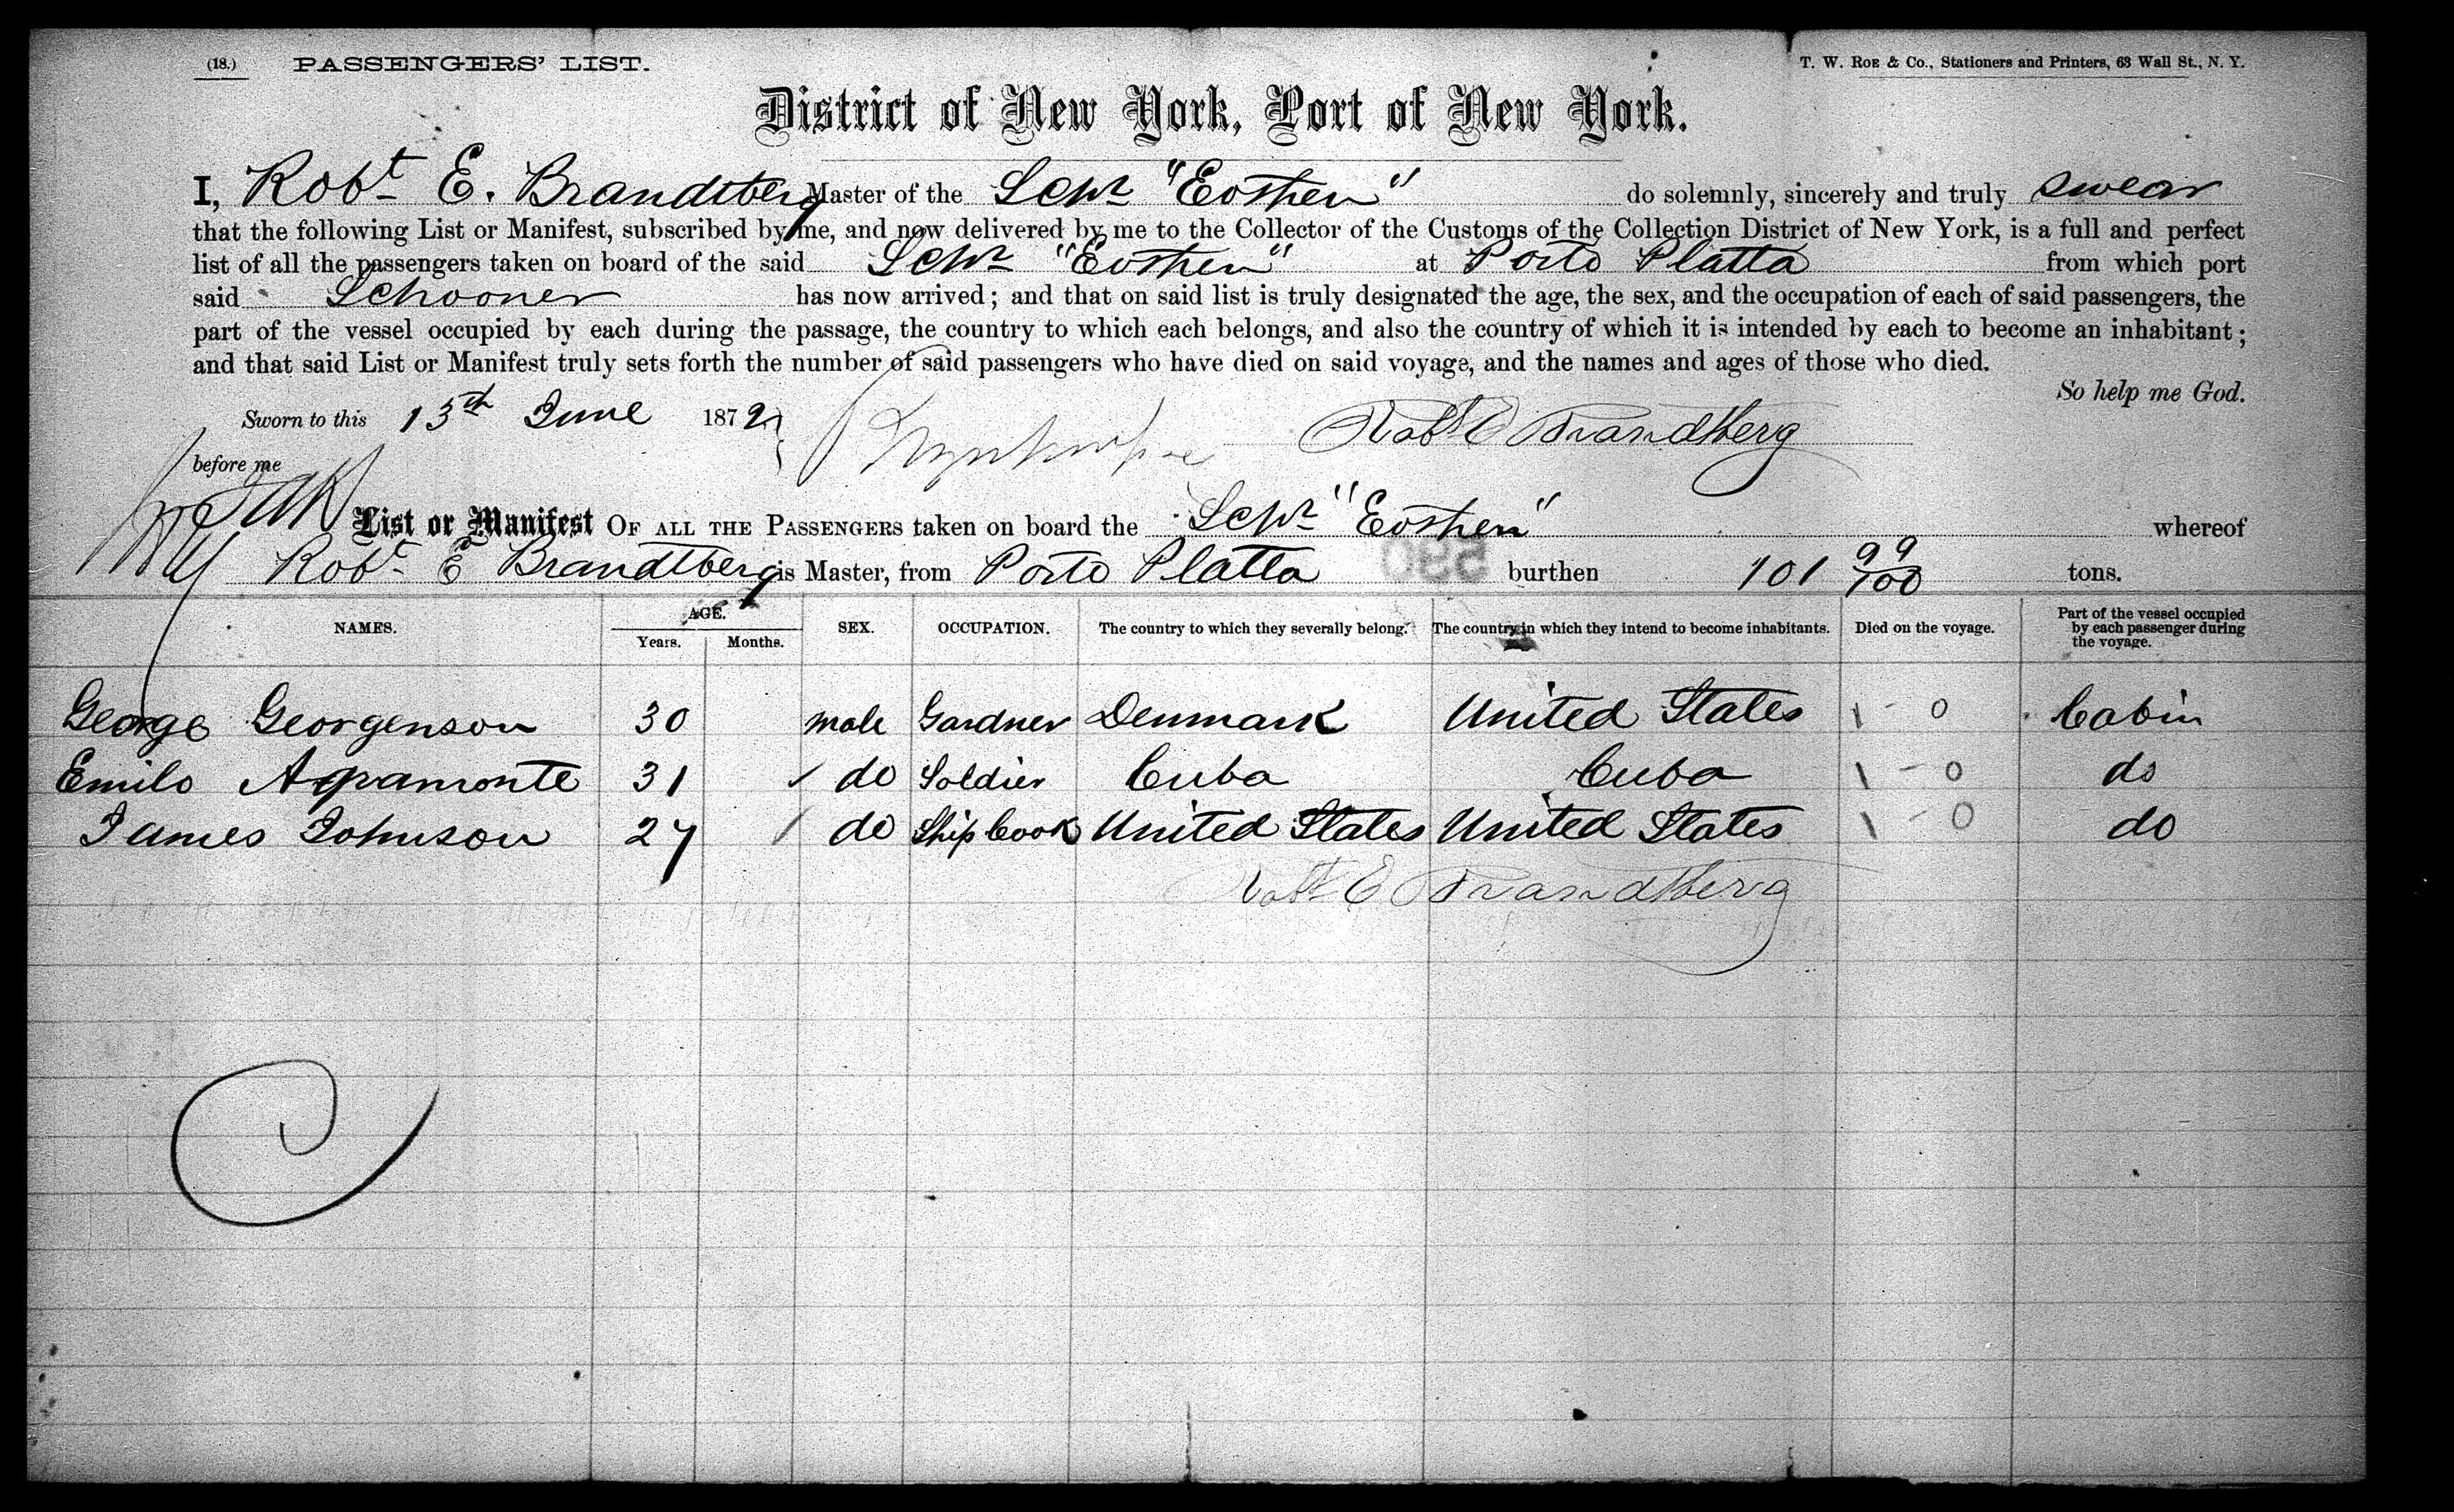 (18.) PASSENGERS' LIST. T. W. ROE & Co., Stationers and Printers, 63 Wall St., N. Y.
District of New York, Port of New York.
I, Robt E. Brandtberg Master of the Schr "Eothen" do solemnly, sincerely and truly swear
that the following List or Manifest, subscribed by me, and now delivered by me to the Collector of the Customs of the Collection District of New York, is a full and perfect
list of all the passengers taken on board of the said Schr "Eothen" at Porto Platta from which port
said Schooner has now arrived; and that on said list is truly designated the age, the sex, and the occupation of each of said passengers, the
part of the vessel occupied by each during the passage, the country to which each belongs, and also the country of which it is intended by each to become an inhabitant;
and that said List or Manifest truly sets forth the number of said passengers who have died on said voyage, and the names and ages of those who died.
So help me God.
Sworn to this 13th June 1872 Robt E Brandtberg
before me
List or Manifest OF ALL THE PASSENGERS taken on board the Schr "Eothen" whereof
Robt E Brandtberg is Master, from Porto Platta burthen 101 99/100 tons.
NAMES. AGE. Years. Months. SEX. OCCUPATION. The country to which they severally belong. The country in which they intend to become inhabitants. Died on the voyage. Part of the vessel occupied by each passenger during the voyage.
George Georgenson 30 male Gardner Denmark United States 1 - 0 Cabin
Emilo Agramonte 31 do Soldier Cuba Cuba 1 - 0 do
James Johnson 27 do Ship Cook United States United States 1 - 0 do
Robt E Brandtberg